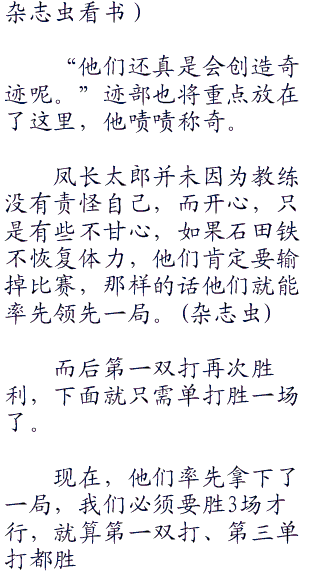 杂志虫看书)
“他们还真是会创造奇
迹呢。”迹部也将重点放在
了这里，他啧啧称奇。
凤长太郎并未因为教练
没有责怪自己，而开心，只
是有些不甘心，如果石田铁
不恢复体力，他们肯定要输
掉比赛，那样的话他们就能
率先领先一局。(杂志虫)
而后第一双打再次胜
利，下面就只需单打胜一场
了。
现在，他们率先拿下了
一局，我们必须要胜3场才
行，就算第一双打、第三单
打都胜